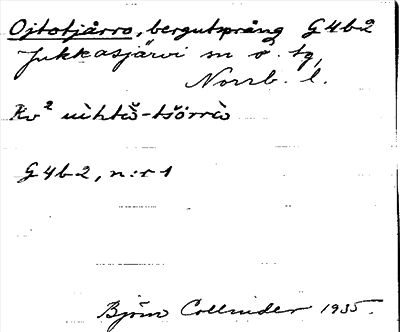 Ojtotjårro, bergutsprång G4b2
Jukkasjärvi sn o. tg,
Norrb. l.
Kv² uìhtŭš-tšŏrrŭ
G4b2, n:r 1
Björn Collinder 1935.